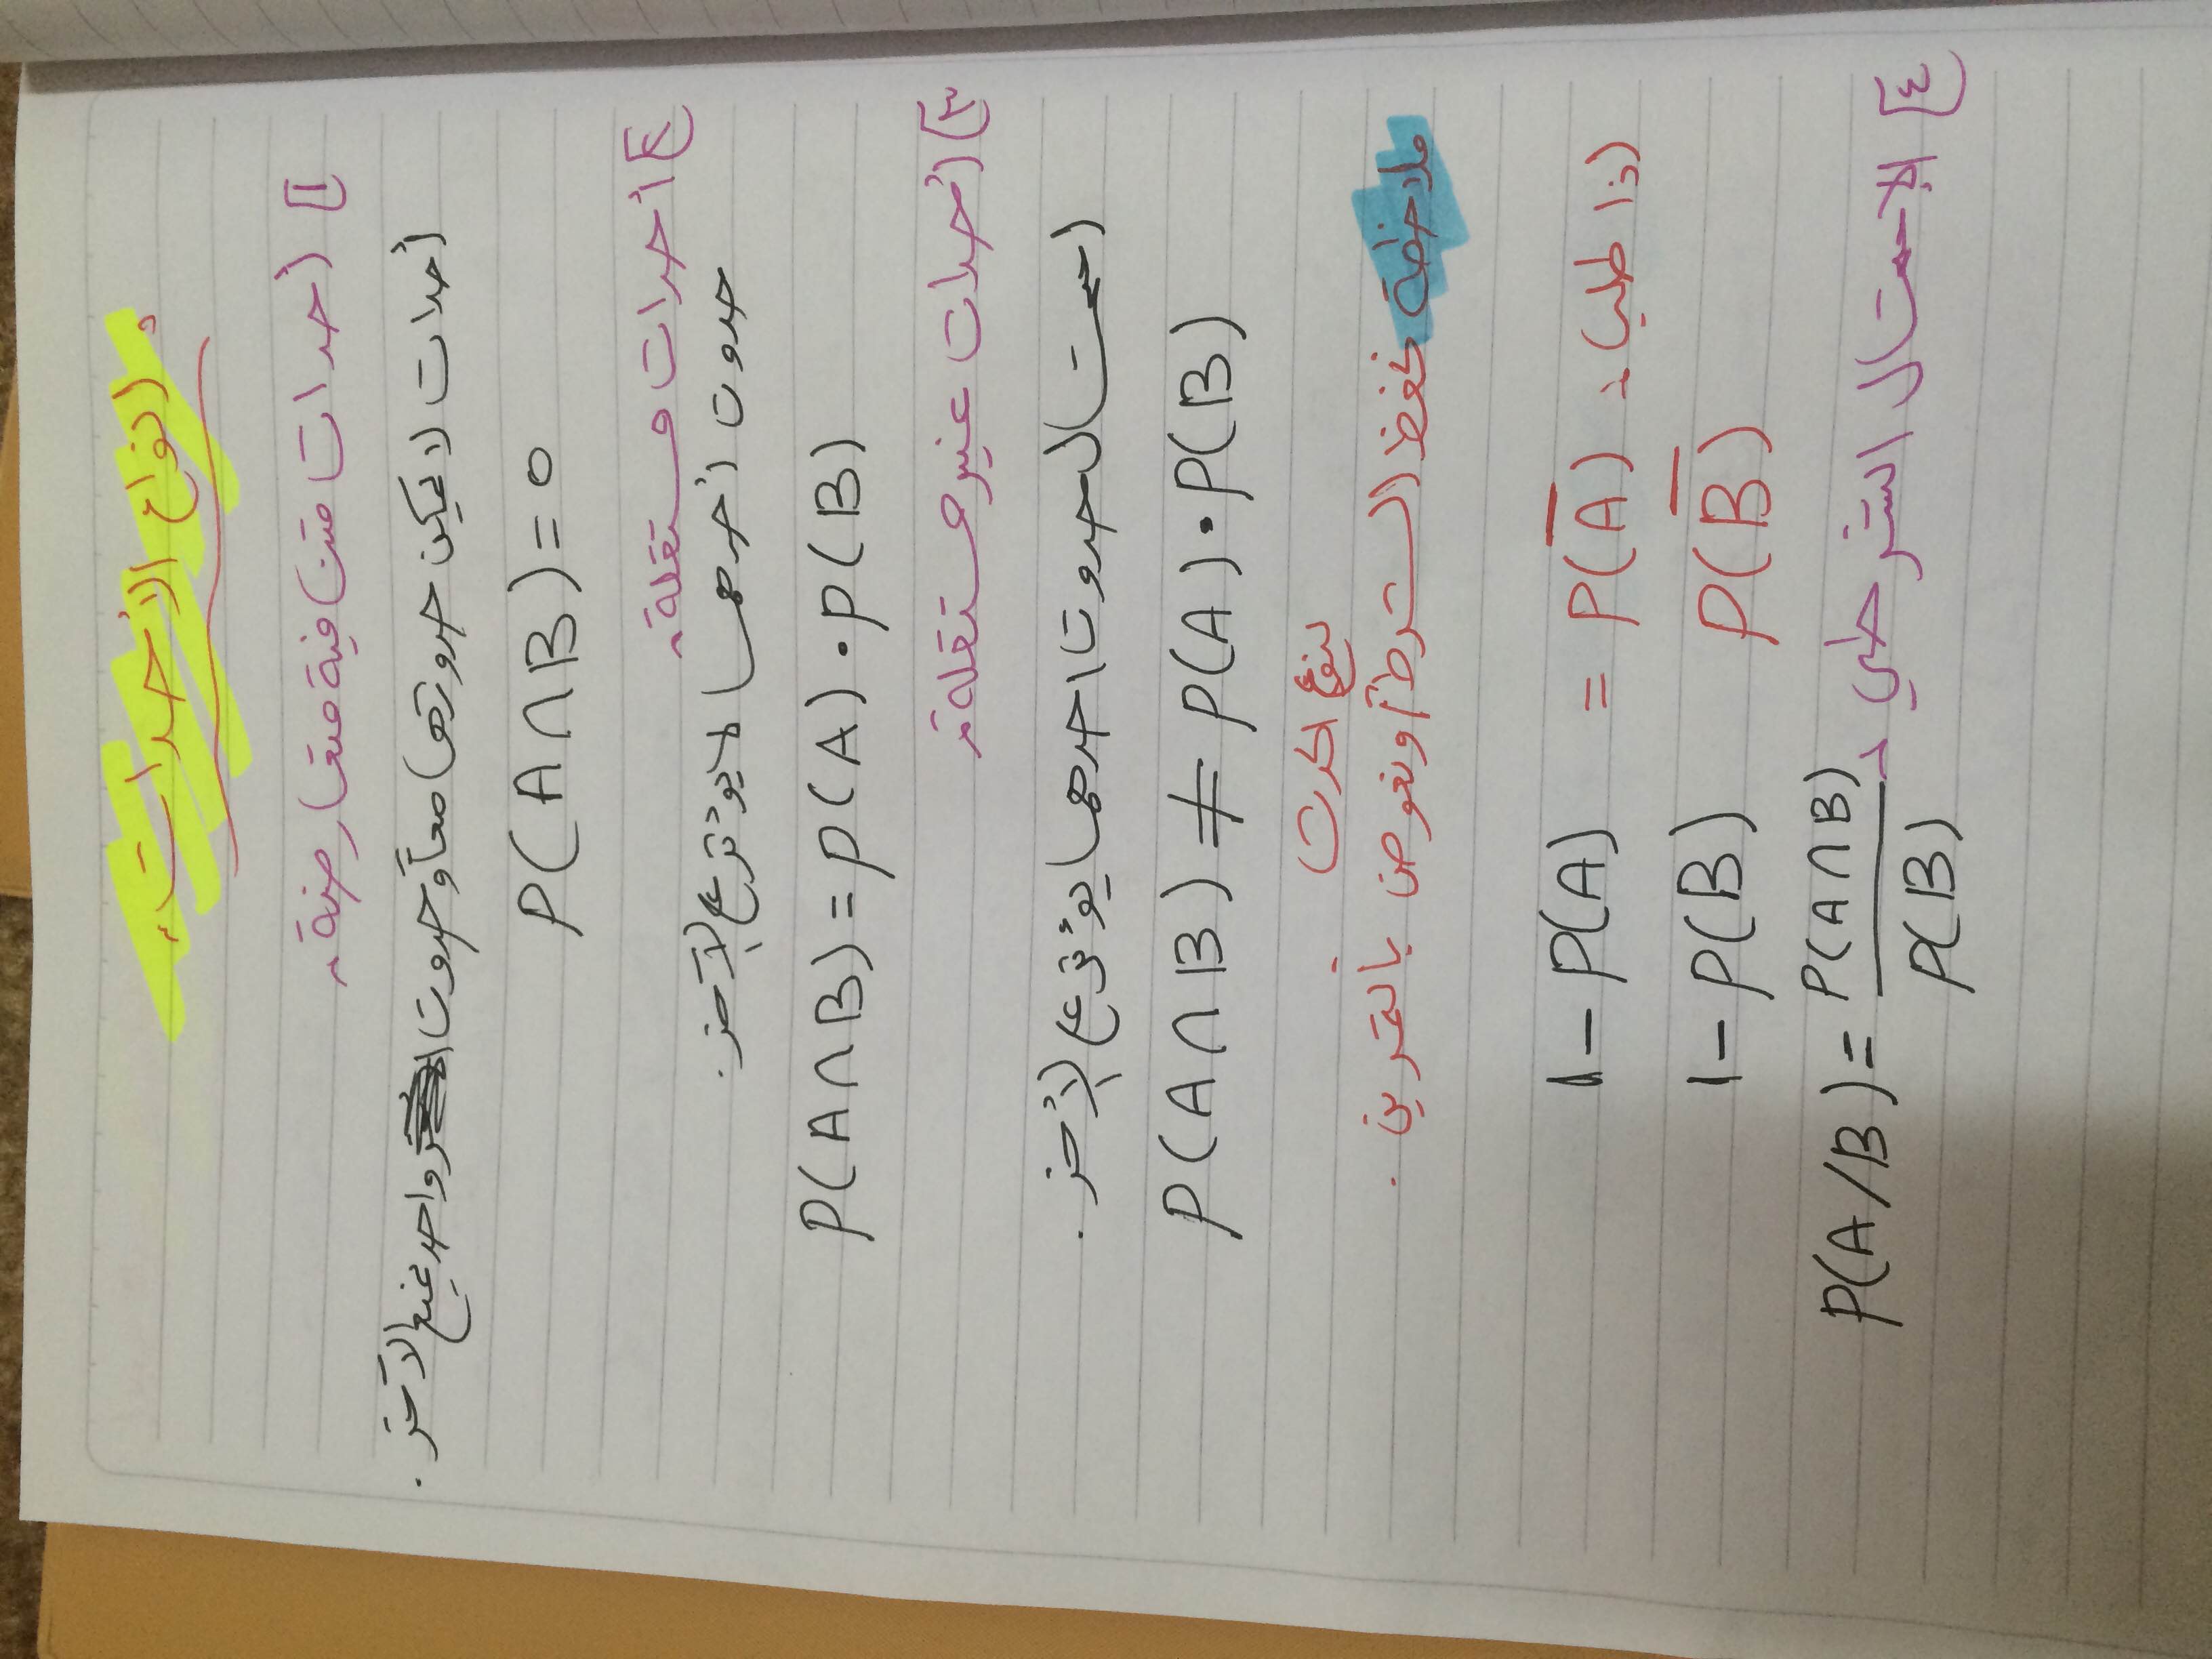 أنواع الأحداث
1 أحداث متنافية متعارضة
أحداث لا يمكن حدوثها معاً وحدوث واحد يمنع الآخر .
P(A∩B)=0
٢ أحداث مستقلة
حدوث أحدهما لا يؤثر ع الآخر .
P(A∩B)=P(A)·P(B)
٣ أحداث غير مستقلة
احتمال حدوث احدهما يؤثر ع الآخر .
P(A∩B)≠P(A)·P(B)
ملاحظة نحفظ الشرط أو نعوض بالتمرين .
لنوع الحدث
إذا طلب P(A̅) = 1-P(A)
P(B̅) 1-P(B)
٤ الاحتمال الشرطي
P(A/B)= P(A∩B)
P(B)